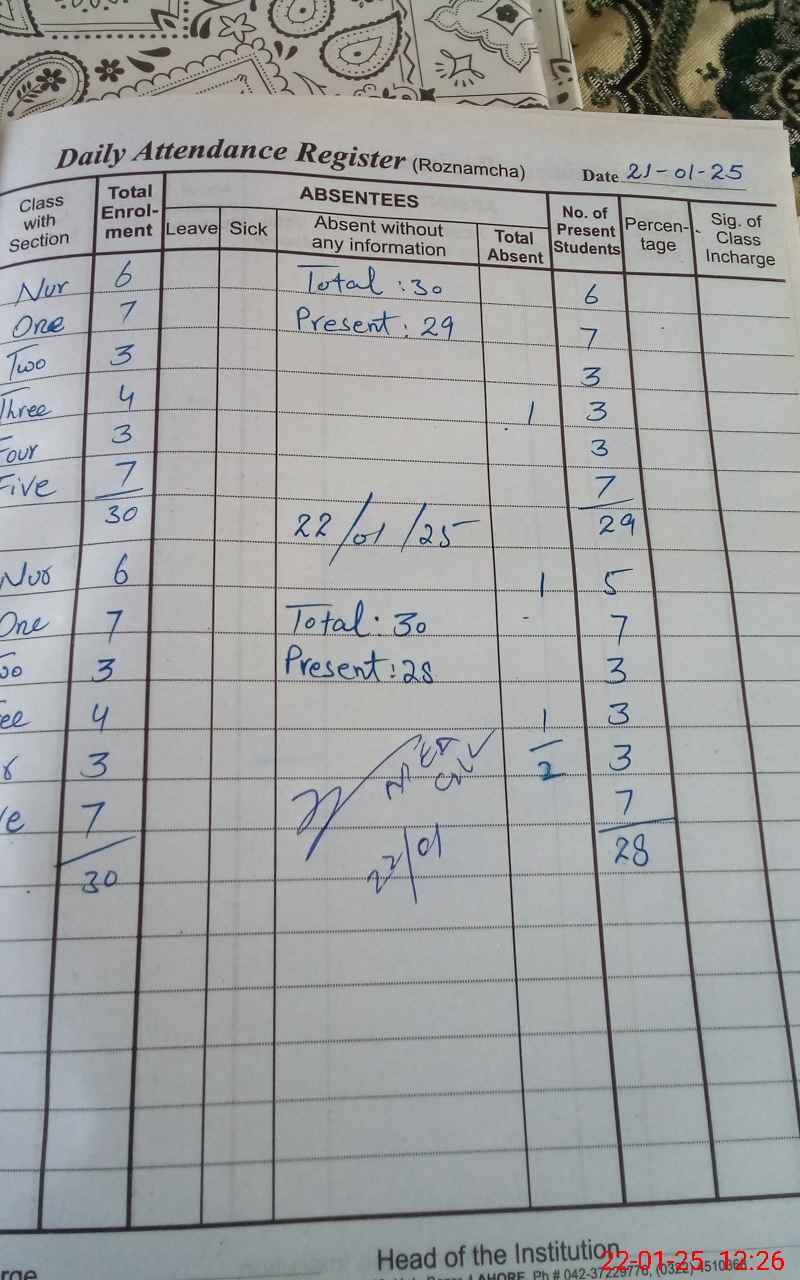 Daily Attendance Register (Roznamcha) Date 21-01-25
Class with Section Total Enrol-ment ABSENTEES No. of Present Students Percen-tage Sig. of Class Incharge
Leave Sick Absent without any information Total Absent
Nur 6 Total : 30 6
One 7 Present : 29 7
Two 3 3
Three 4 1 3
Four 3 3
Five 7 7
30 29
22/01/25
Nur 6 1 5
One 7 Total : 30 7
wo 3 Present : 28 3
ee 4 1 3
r 3 2 3
ve 7 7
22/01 28
30
Head of the Institution
rge
LAHORE. Ph # 042-37229776, (0322)
22-01-25 12:26